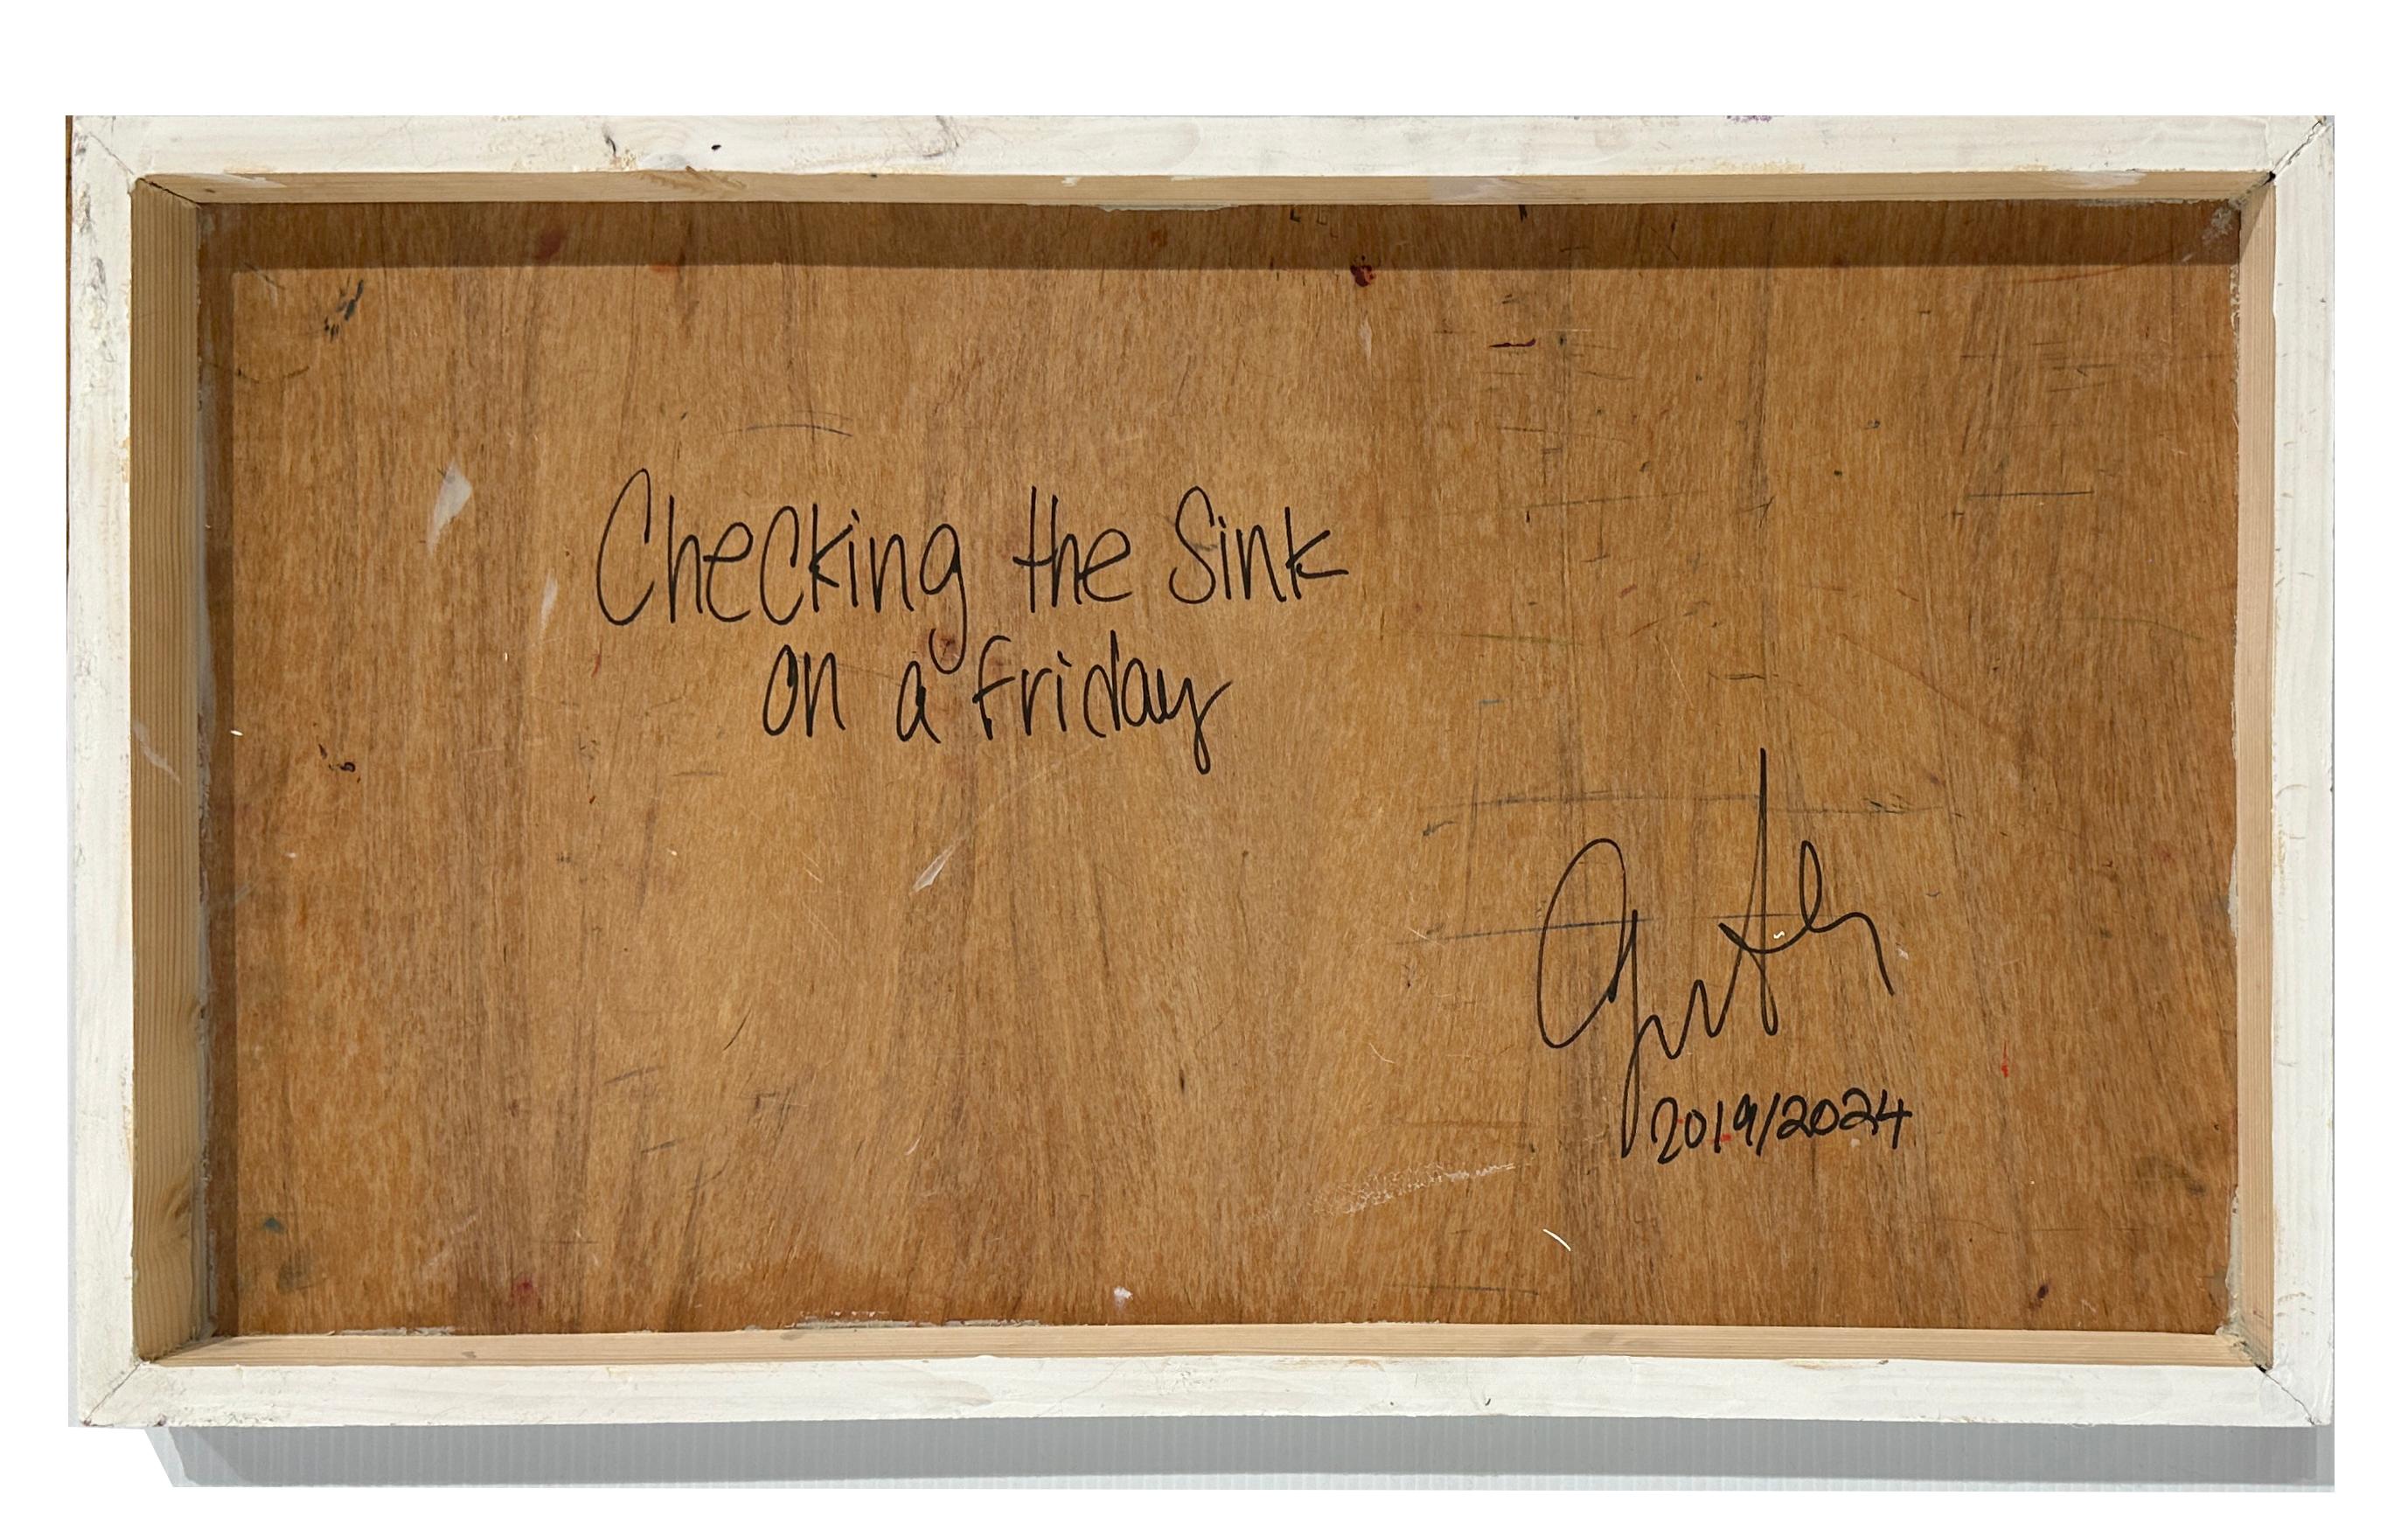 Checking the Sink
on a Friday
2019/2024